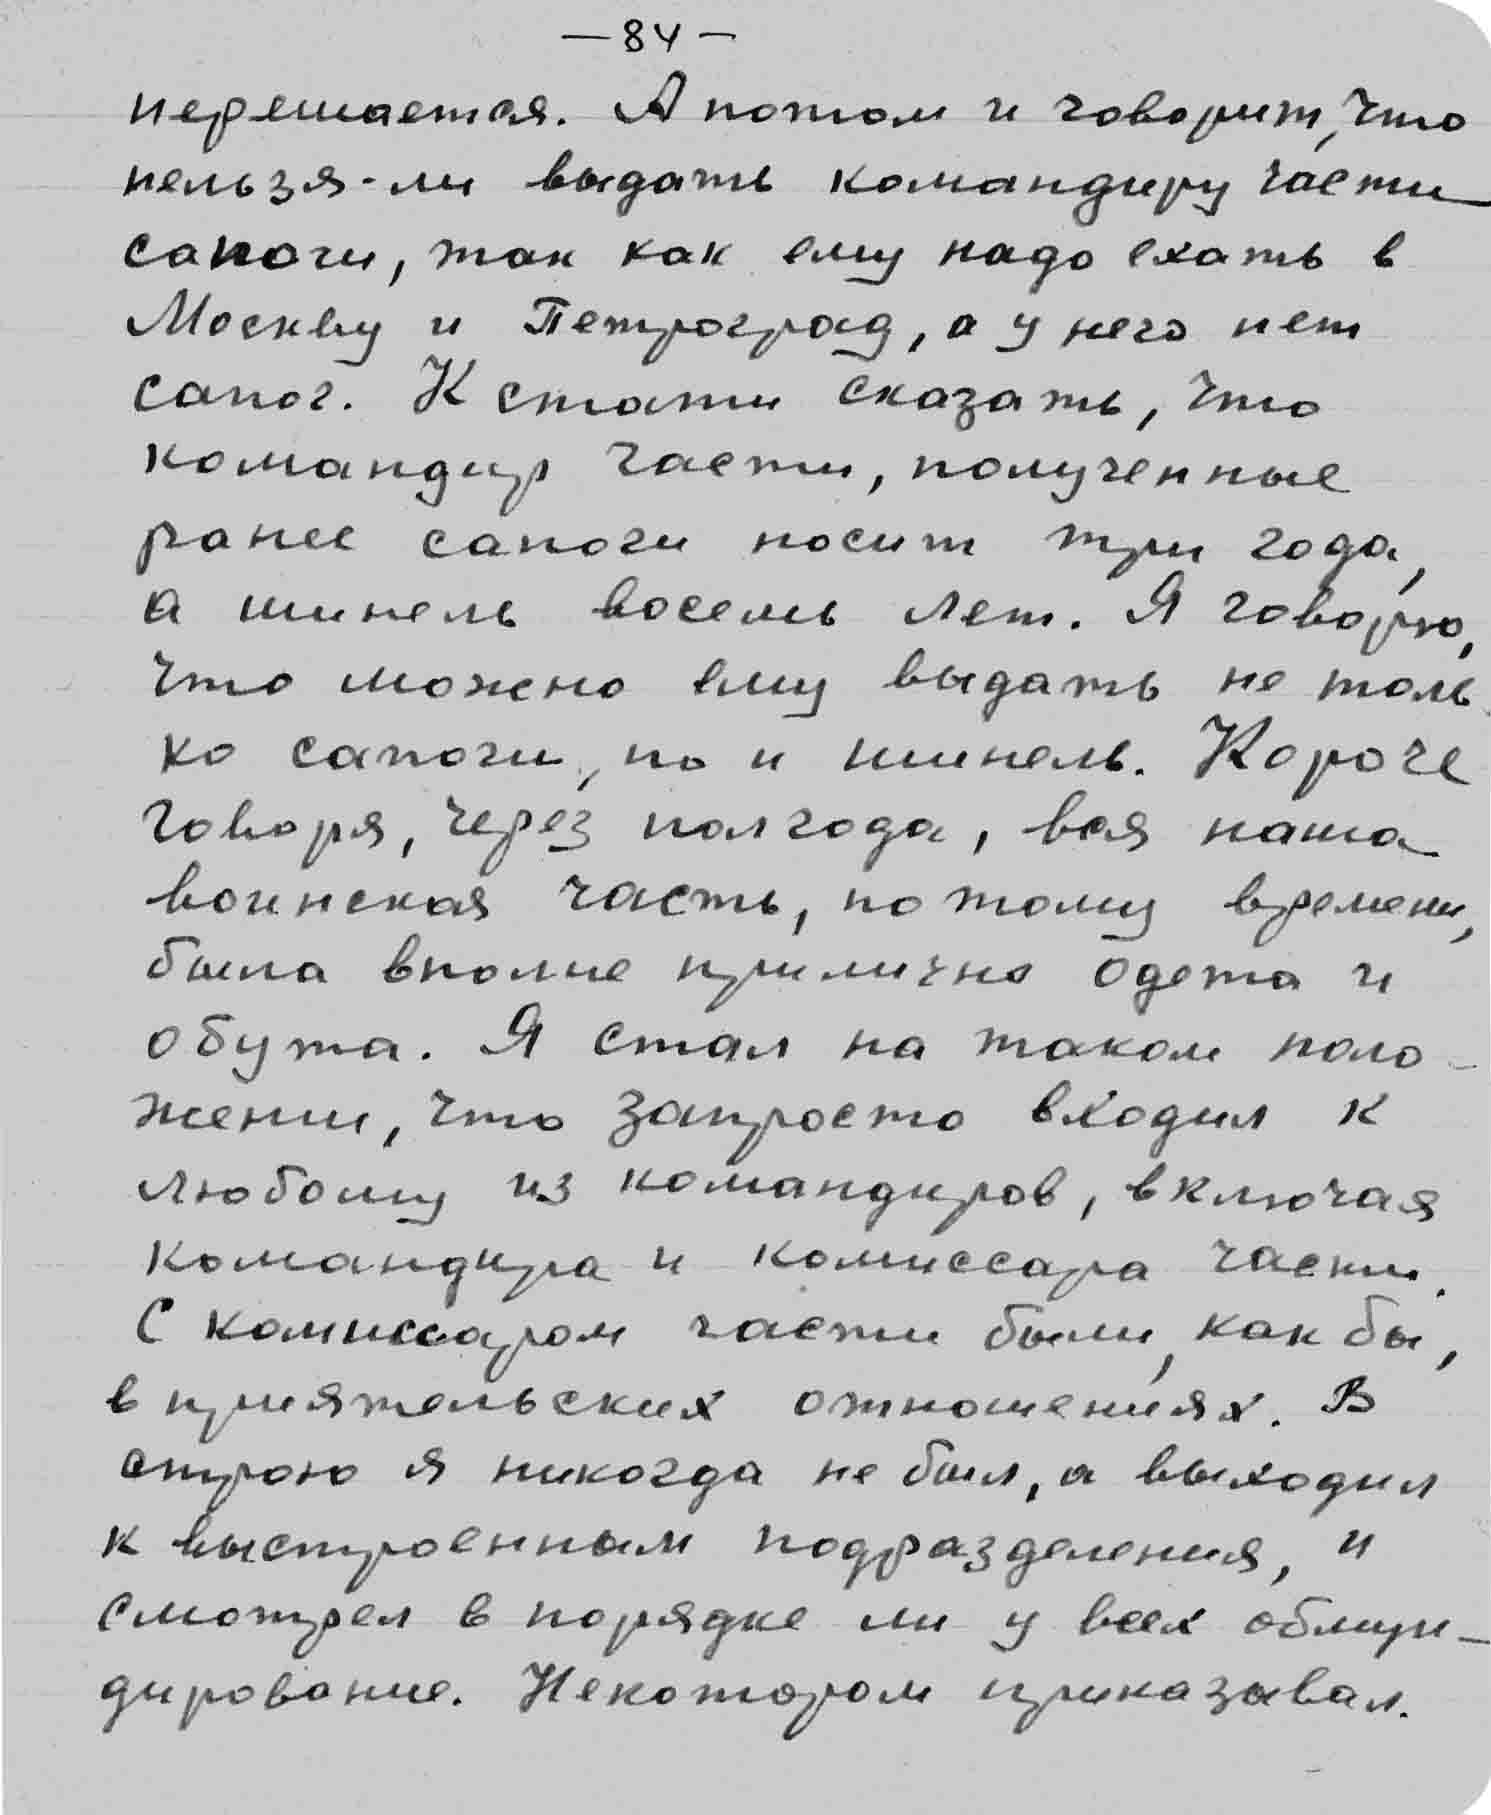 — 84 —
нерешается. А потом и говорит, что
нельзя-ли выдать командиру части
сапоги, так как ему надо ехать в
Москву и Петроград, а у него нет
сапог. К стати сказать, что
командир части, полученные
ранее сапоги носит три года,
а шинель восемь лет. Я говорю,
что можно ему выдать не толь-
ко сапоги, но и шинель. Короче
говоря, через полгода, вся наша
воинская часть, по тому времени,
была вполне прилично одета и
обута. Я стал на таком поло-
жении, что запросто входил к
любому из командиров, включая
командира и комиссара части.
С комиссаром части были, как бы,
в приятельских отношениях. В
строю я никогда не был, а выходил
к выстроенным подразделения, и
смотрел в порядке ли у всех обмун-
дирование. Некотором приказывал.